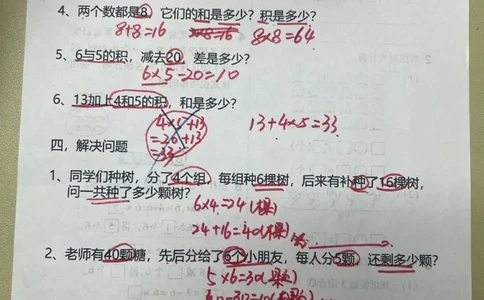 4、两个数都是8，它们的和是多少？积是多少？
8+8=16 8×8=64
5、6与5的积，减去20，差是多少？
6×5-20=10
6、13加上4和5的积，和是多少？
4×5+13 13+4×5=33
=20+13
=33
四，解决问题
1、同学们种树，分了4个组，每组种6棵树，后来有补种了16棵树，
问一共种了多少颗树？
6×4=24(棵)
24+16=40(棵)
答
2、老师有40颗糖，先后分给了6个小朋友，每人分5颗，还剩多少颗？
5×6=30(颗)